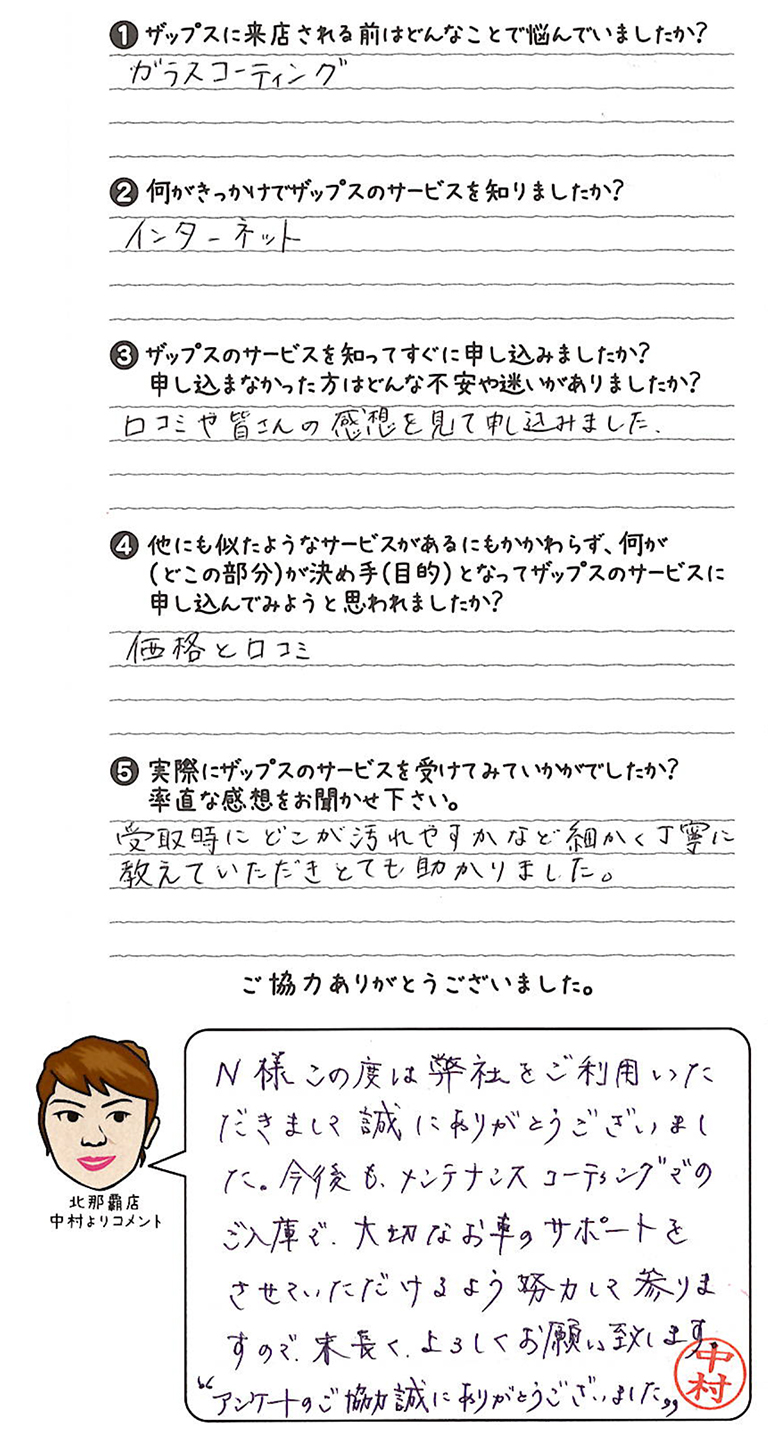 ❶ ザップスに来店される前はどんなことで悩んでいましたか?
ガラスコーティング
❷ 何がきっかけでザップスのサービスを知りましたか?
インターネット
❸ ザップスのサービスを知ってすぐに申し込みましたか?
申し込まなかった方はどんな不安や迷いがありましたか?
口コミや皆さんの感想を見て申し込みました.
❹ 他にも似たようなサービスがあるにもかかわらず、何が
(どこの部分)が決め手(目的)となってザップスのサービスに
申し込んでみようと思われましたか?
価格と口コミ
❺ 実際にザップスのサービスを受けてみていかがでしたか?
率直な感想をお聞かせ下さい。
受取時にどこが汚れやすかなど細かく丁寧に
教えていただきとても助かりました。
ご協力ありがとうございました。
N様この度は弊社をご利用いた
だきまして誠にありがとうございまし
た。今後も、メンテナンスコーティングでの
ご入庫で、大切なお車のサポートを
させていただけるよう努力して参りま
すので、末長く、よろしくお願い致します。
“アンケートのご協力誠にありがとうございました„
中村
北那覇店
中村よりコメント